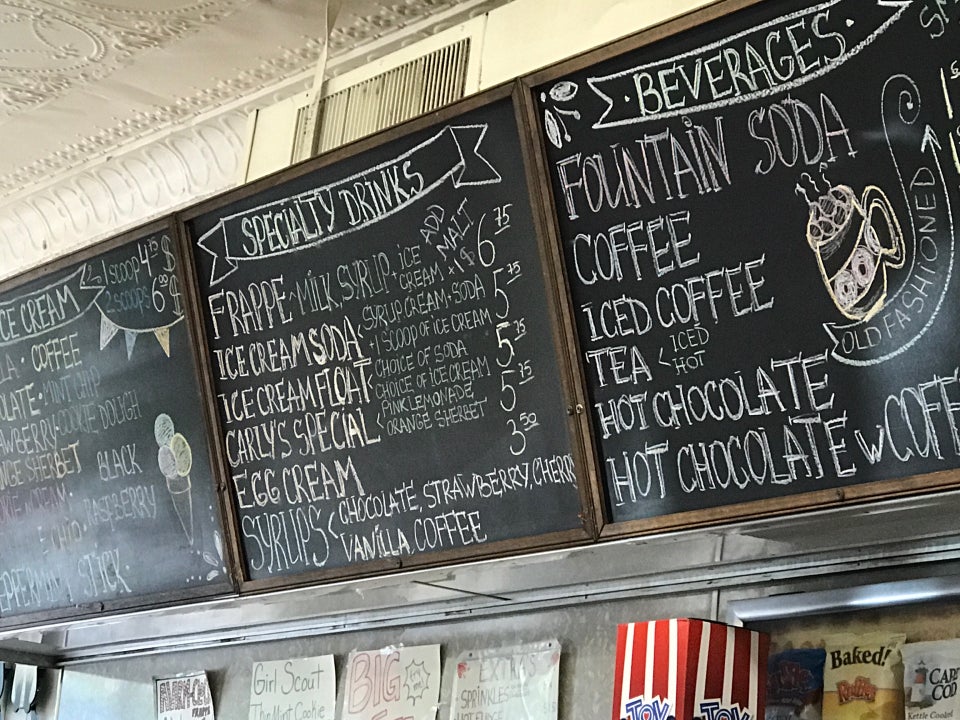 ICE CREAM
1 SCOOP 4.75 $
2 SCOOPS 6.00 $
COFFEE
MINT CHIP
COOKIE DOUGH
SHERBET BLACK
RASPBERRY
STICK
SPECIALTY DRINKS
ADD MALT +1$
FRAPPE - MILK, SYRUP, ICE CREAM 6.75
ICE CREAM SODA < SYRUP, CREAM, SODA +1 SCOOP OF ICE CREAM 5.75
ICE CREAM FLOAT < CHOICE OF SODA CHOICE OF ICE CREAM 5.75
CARLY'S SPECIAL < PINK LEMONADE ORANGE SHERBET 5.75
EGG CREAM 3.50
SYRUPS < CHOCOLATE, STRAWBERRY, CHERR
VANILLA, COFFEE
BEVERAGES
FOUNTAIN SODA
COFFEE
ICED COFFEE
TEA < ICED
HOT
HOT CHOCOLATE
HOT CHOCOLATE w COFF
OLD FASHIONED
Girl Scout
Thin Mint Cookie
BIG
EXTRAS
SPRINKLES
HOT FUDGE
TOY
TOY
Baked!
Ruffles
CAPE
COD
Kettle Cooked